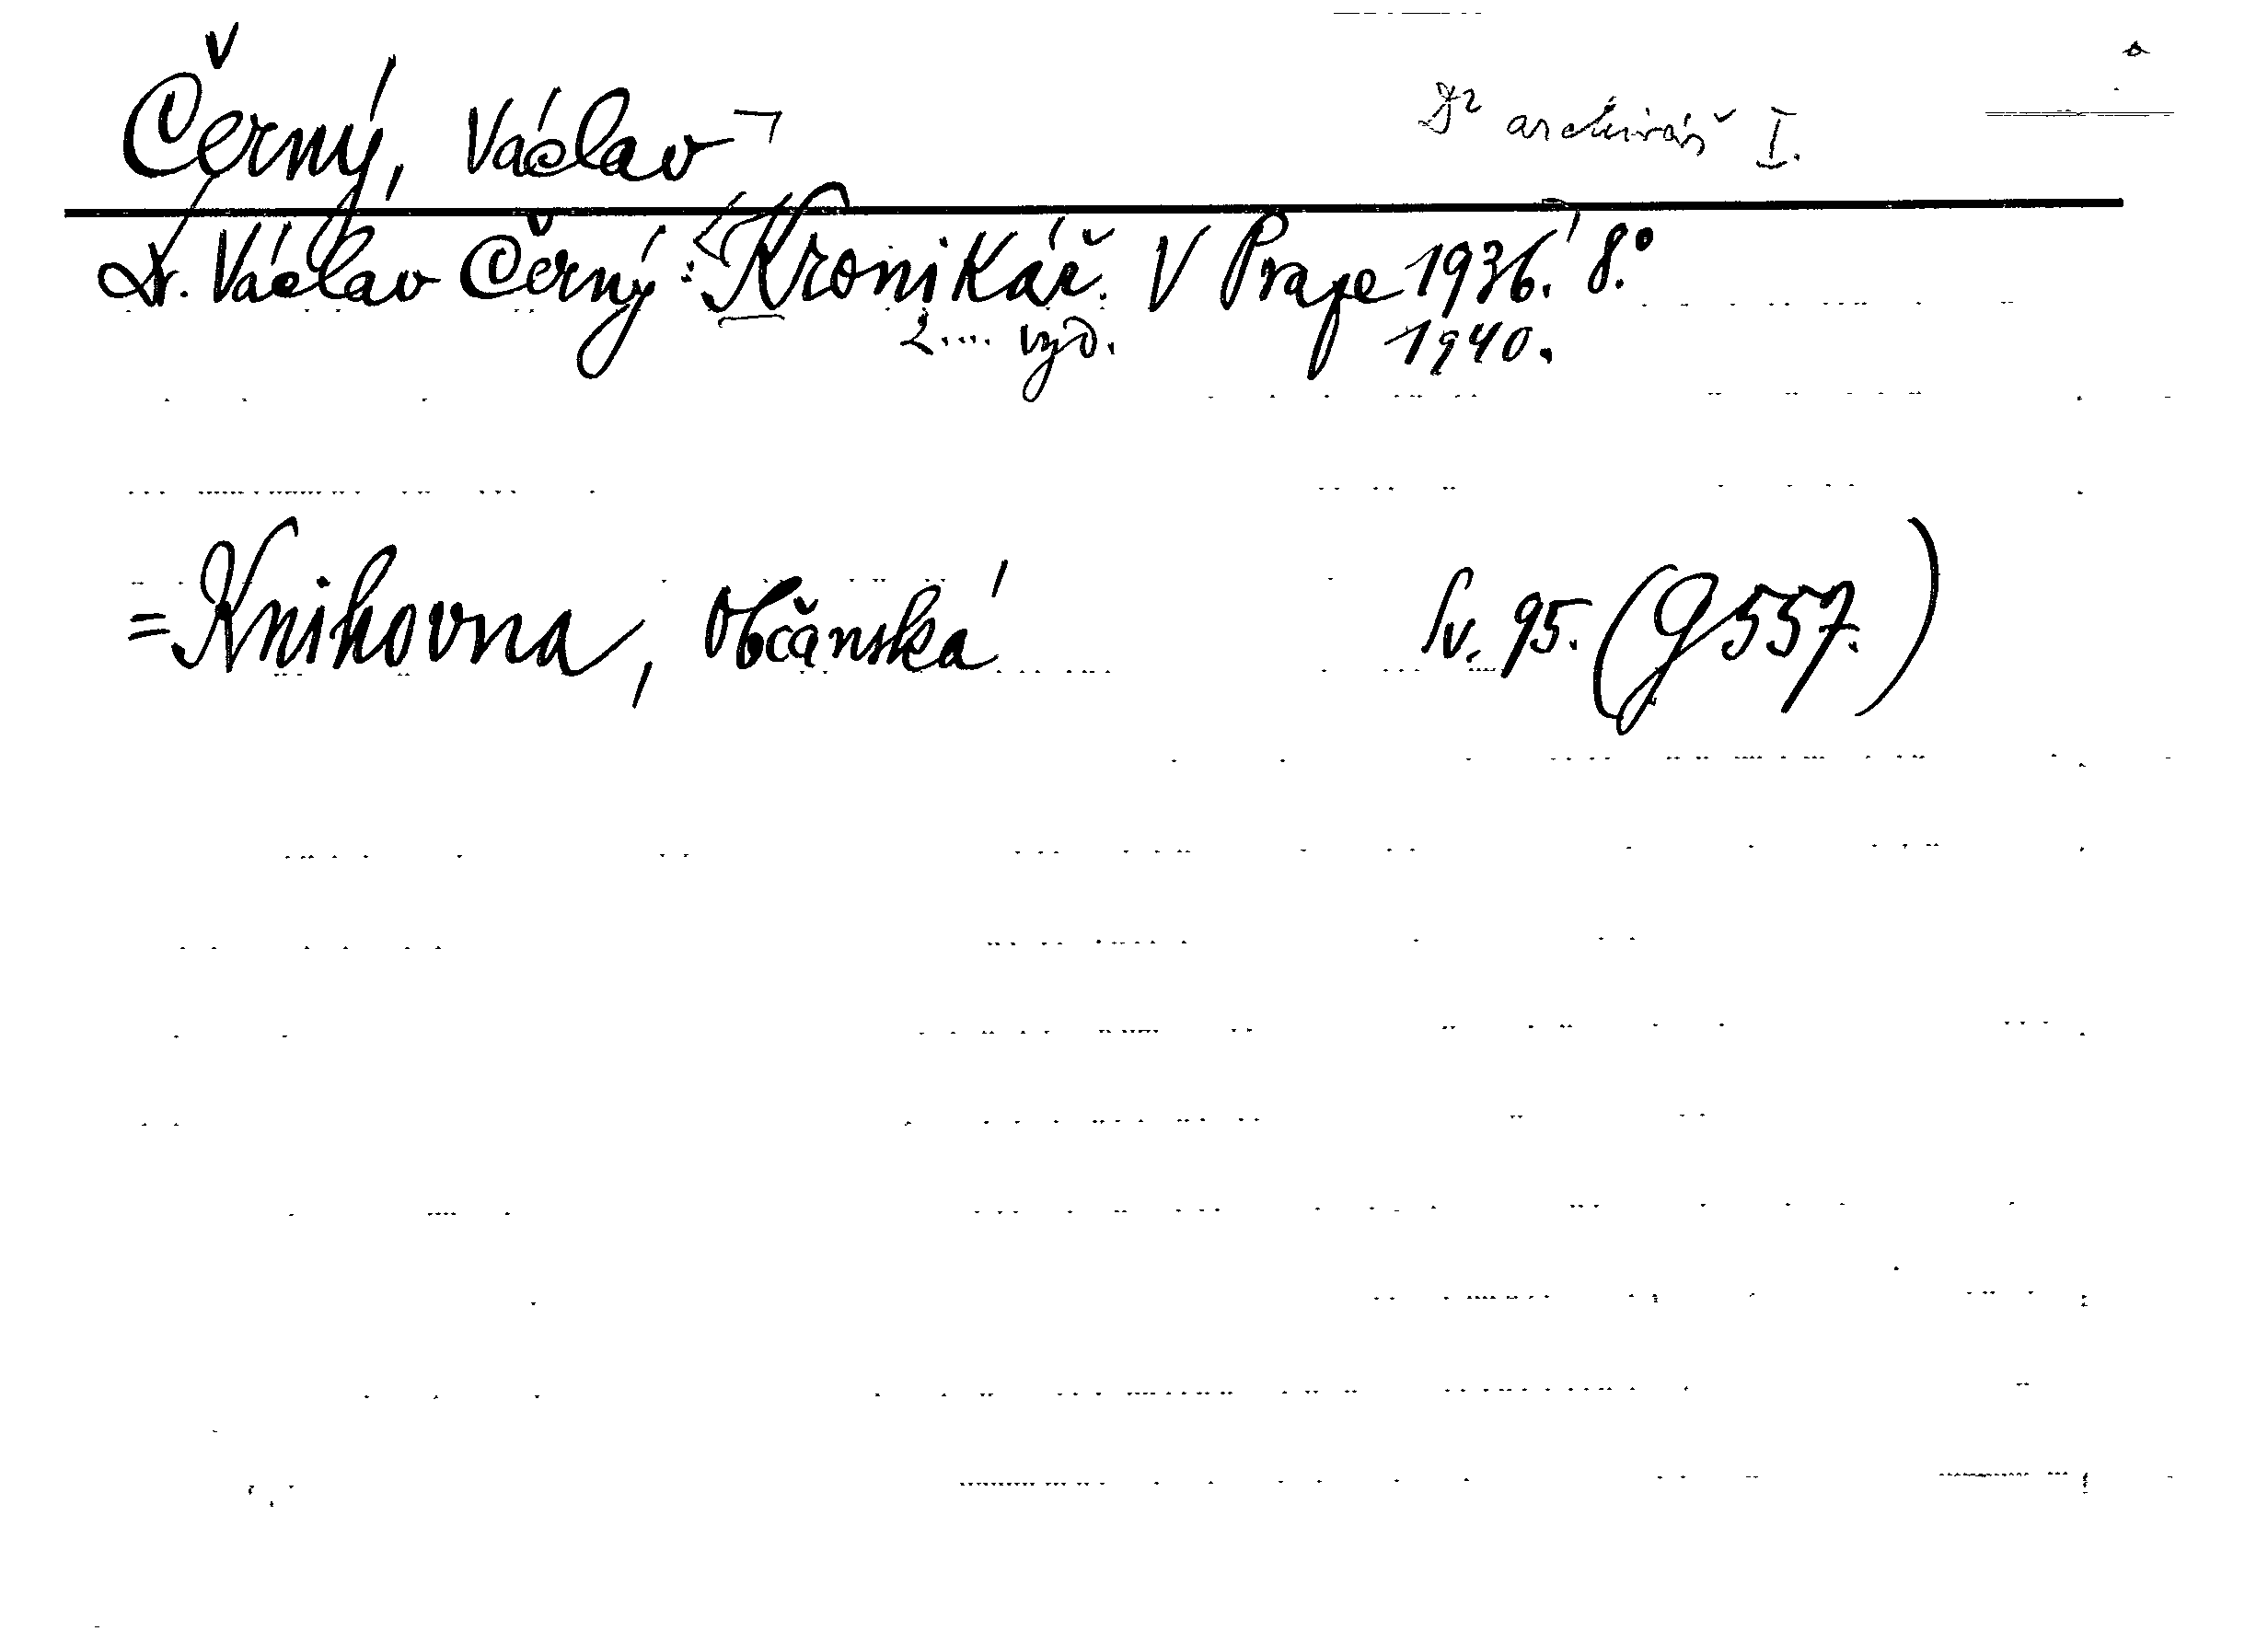 Černý, Václav
Dr archivář I.
Dr. Václav Černý: Kronikář. V Praze 1936. 8.°
2.... vyd. 1940.
=Knihovna, Občanská Sv. 95. (g 557.)